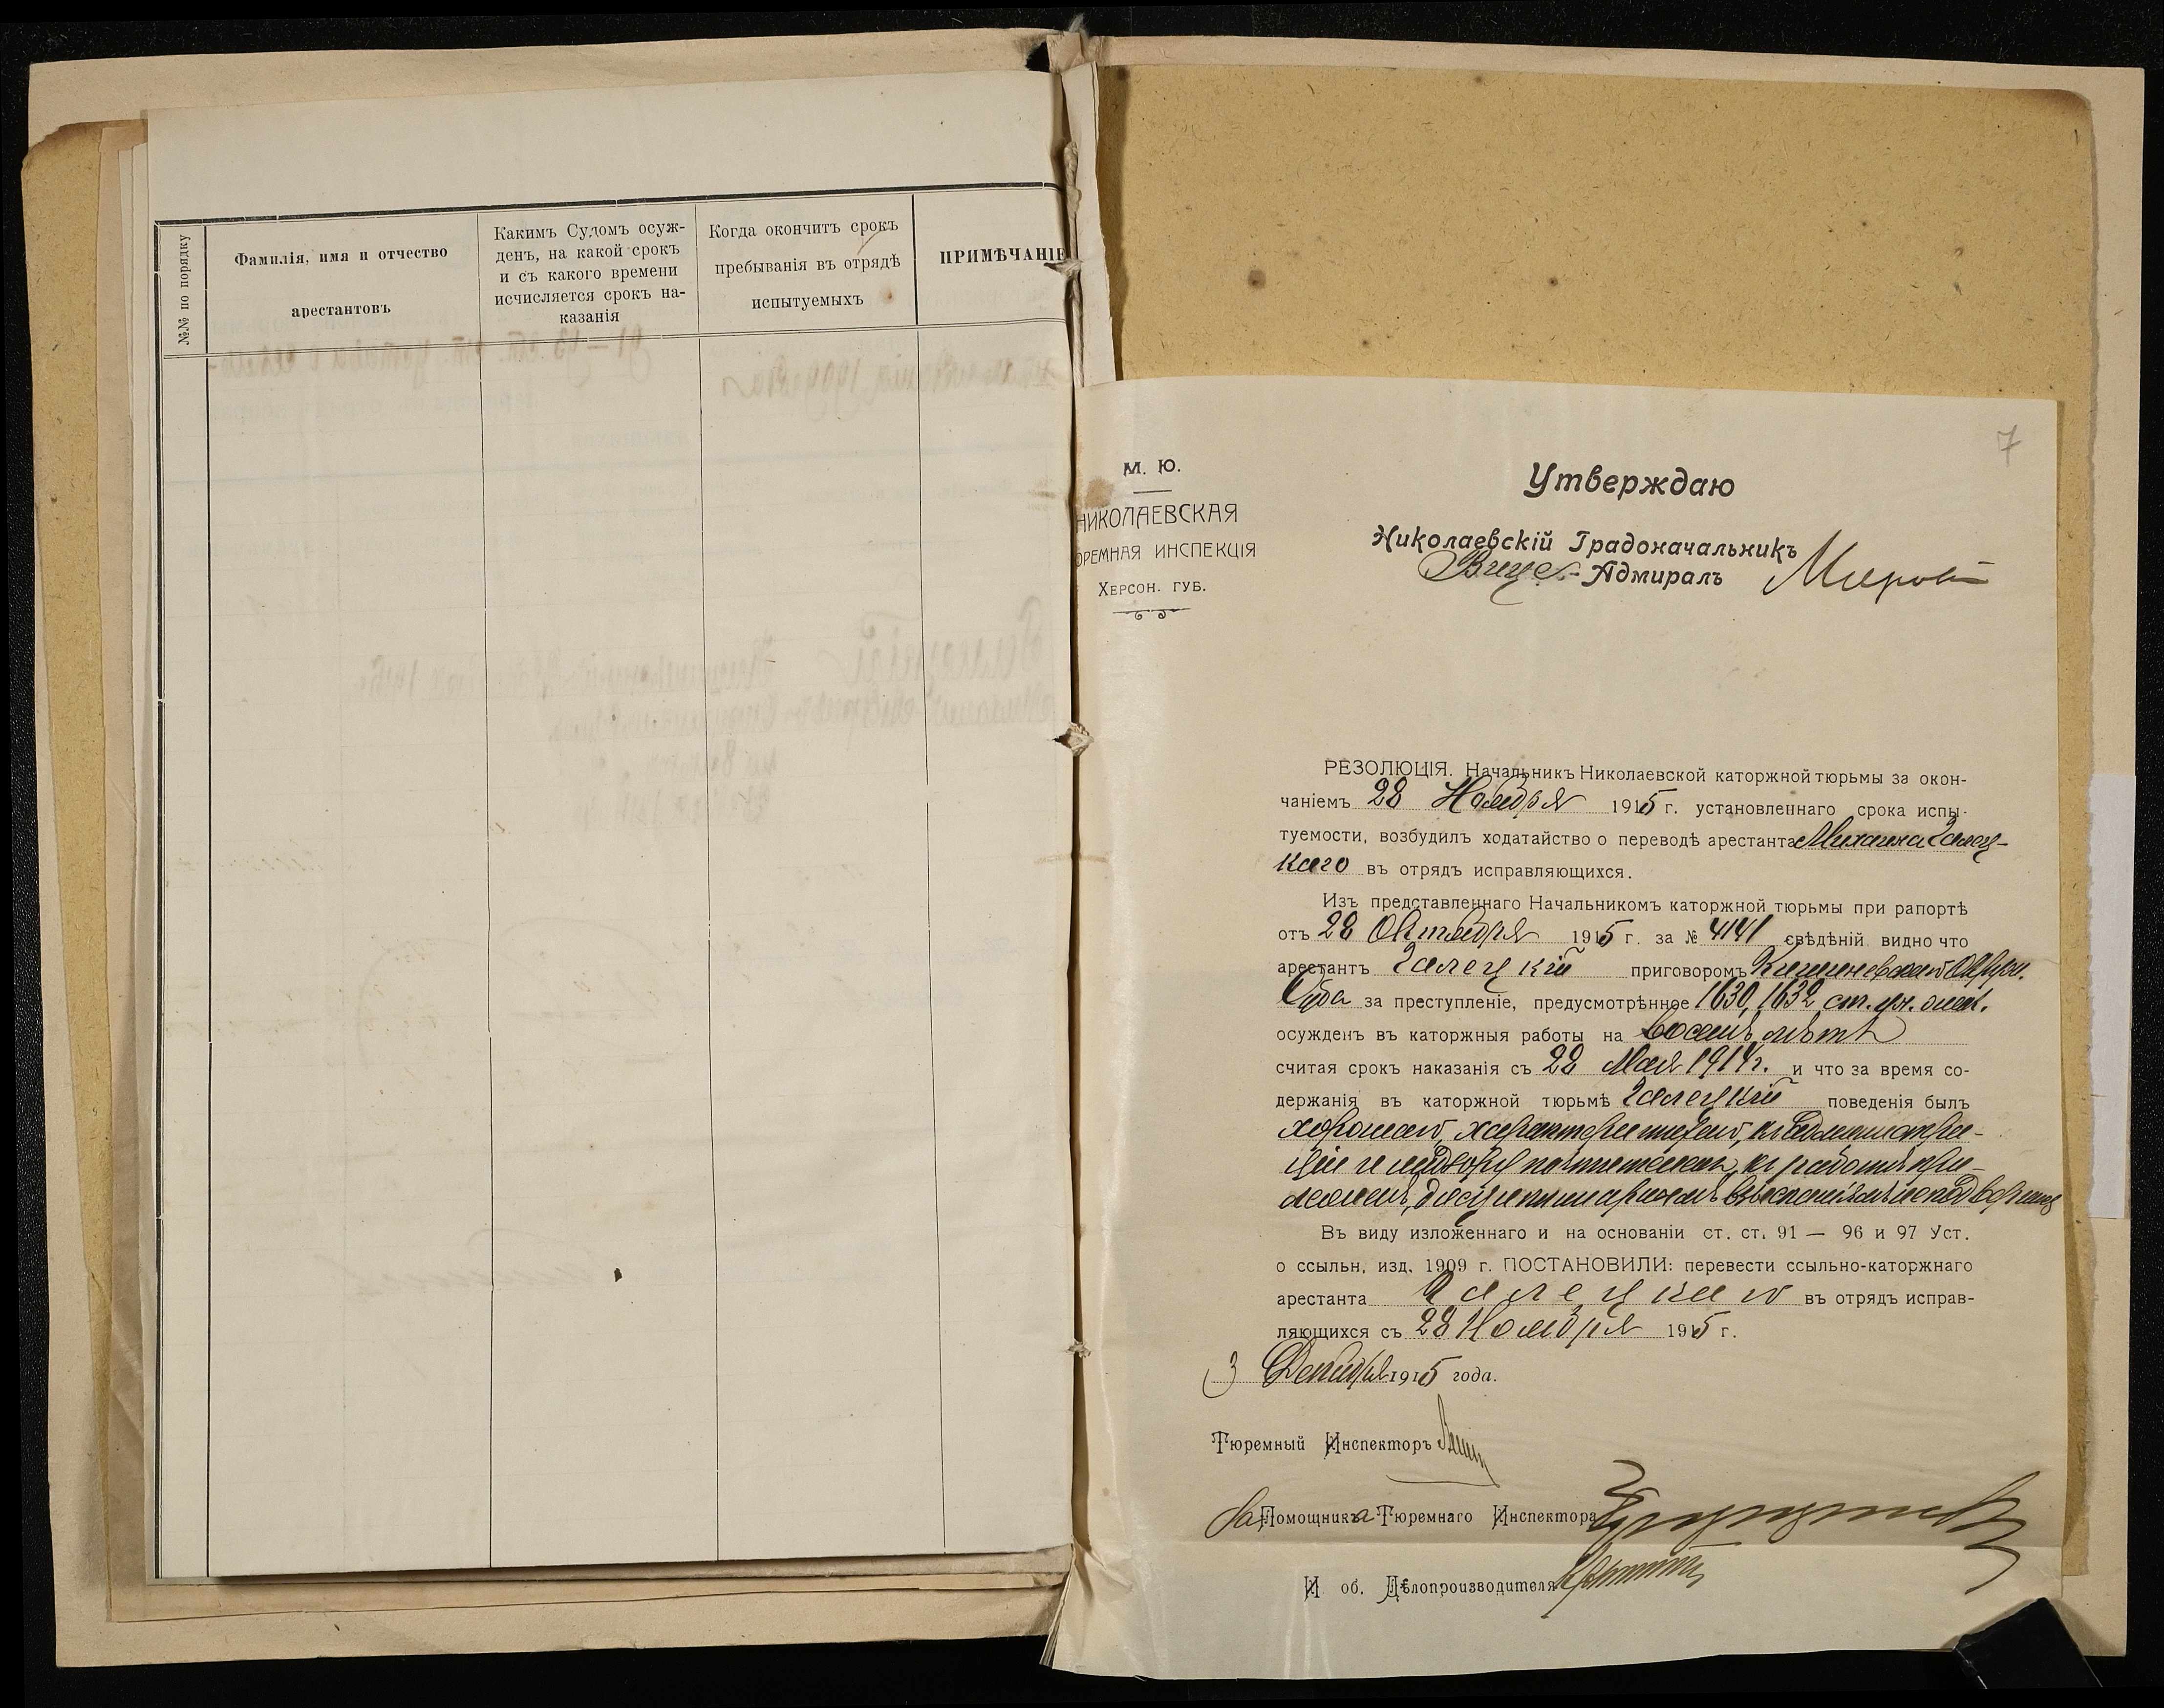 №№ по порядку
Фамилія, имя и отчество
арестантовъ
Какимъ Судомъ осуж-
денъ, на какой срокъ
и съ какого времени
исчисляется срокъ на-
казанія
Когда окончитъ срокъ
пребыванія въ отрядѣ
испытуемыхъ
ПРИМѢЧАНІЕ
7
М. Ю.
НИКОЛАЕВСКАЯ
ЮРЕМНАЯ ИНСПЕКЦІЯ
ХЕРСОН. ГУБ.
Утверждаю
Николаевскій Градоначальникъ
Вице-Адмиралъ
РЕЗОЛЮЦІЯ. Начальникъ Николаевской каторжной тюрьмы за окон-
чаніемъ 28 Ноября 1915 г. установленнаго срока испы-
туемости, возбудилъ ходатайство о переводѣ арестанта Михаила Галец-
каго въ отрядъ исправляющихся.
Изъ представленнаго Начальникомъ каторжной тюрьмы при рапортѣ
отъ 28 Октября 1915 г. за № 4141 свѣдѣній видно что
арестантъ Галецкій приговоромъ Кишиневскаго Окружн.
Суда за преступленіе, предусмотрѣнное 1630, 1632 ст. ул. о нак.
осужденъ въ каторжныя работы на восемь лѣтъ
считая срокъ наказанія съ 28 Мая 1914 г. и что за время со-
держанія въ каторжной тюрьмѣ Галецкій поведенія былъ
хорошаго, характера тихаго, къ администра-
ціи и надзору почтителенъ, къ работѣ при-
леженъ, дисциплинарнымъ взысканіямъ не подвергался
Въ виду изложеннаго и на основаніи ст. ст. 91 — 96 и 97 Уст.
о ссыльн, изд. 1909 г. ПОСТАНОВИЛИ: перевести ссыльно-каторжнаго
арестанта Галецкаго въ отрядъ исправ-
ляющихся съ 28 Ноября 1915 г.
3 Декабря 1915 года.
Тюремный Инспекторъ
За Помощника Тюремнаго Инспектора
И об. Дѣлопроизводителя